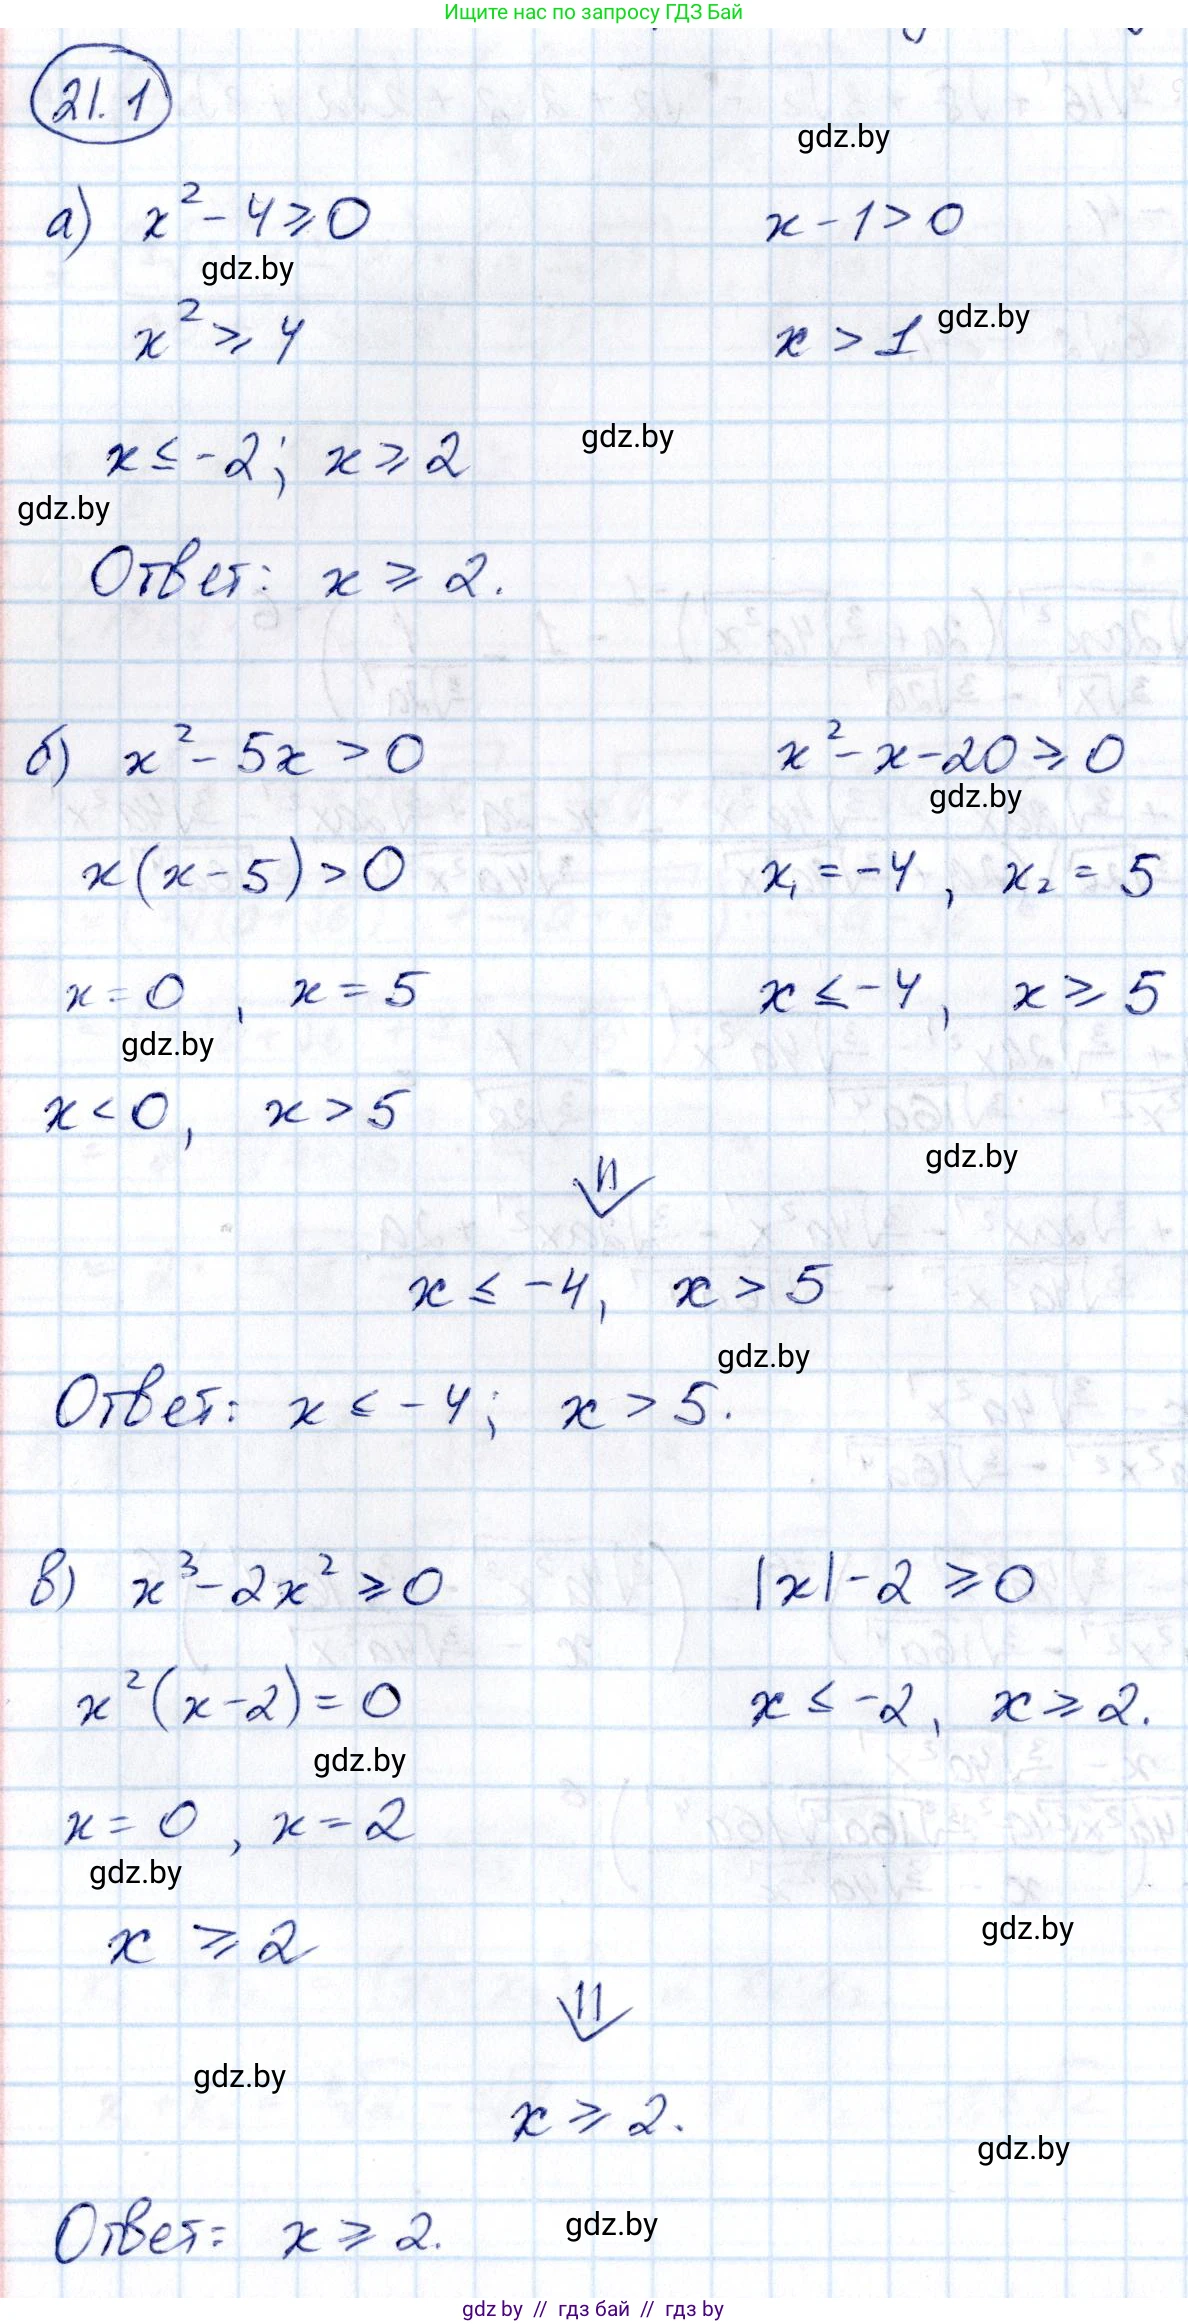 Ищите нас по запросу ГДЗ Бай
21.1
gdz.by
а) x² - 4 ⩾ 0    x - 1 > 0
gdz.by
x² ⩾ 4    x > 1 gdz.by
x ≤ -2; x ⩾ 2 gdz.by
gdz.by
Ответ: x ⩾ 2.
б) x² - 5x > 0    x² - x - 20 ⩾ 0
gdz.by
x(x - 5) > 0    x₁ = -4, x₂ = 5
x = 0, x = 5    x ≤ -4, x ⩾ 5
gdz.by
x < 0, x > 5
gdz.by
⇓
x ≤ -4, x > 5
gdz.by
Ответ: x ≤ -4; x > 5.
в) x³ - 2x² ⩾ 0    |x| - 2 ⩾ 0
x²(x - 2) = 0    x ≤ -2, x ⩾ 2.
gdz.by
x = 0, x = 2
gdz.by
x ⩾ 2 gdz.by
⇓
gdz.by
x ⩾ 2.
gdz.by
Ответ: x ⩾ 2. gdz.by
gdz.by // гдз бай // gdz by